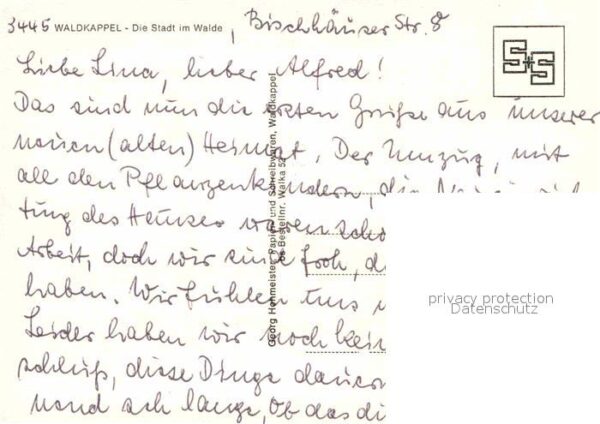 3445 WALDKAPPEL - Die Stadt im Walde, Bischhäuser Str. 8
Liebe Lina, lieber Alfred!
Das sind nun die ersten Grüße aus unserer
neuen (alten) Heimat. Der Umzug, mit
all den Pflanzenkindern, die
tung des Hauses waren scho
Arbeit, doch wir sind froh, d
haben. Wir fühlen uns
Leider haben wir noch kein
schluß, diese Dinge dauern
lange, ob das di
Georg Hohmeister, Papier- und Schreibwaren, Waldkappel
Bestellnr. Walka 52
privacy protection
Datenschutz